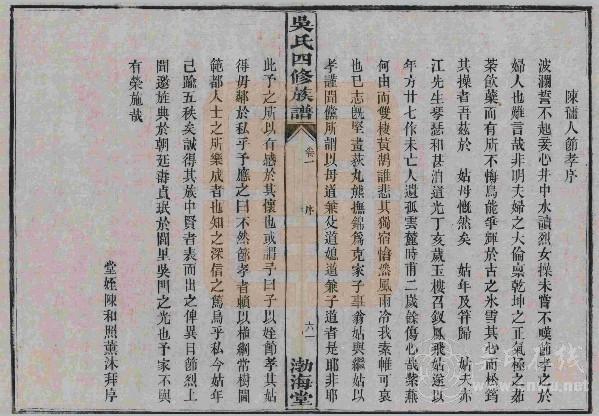 陳孺人節孝序
波瀾誓不起妾心井中水讀烈女操未嘗不嘆 孝之於
婦人也難言哉非明夫婦之大倫稟乾坤之正氣極之茹
荼飲蘗而有所不悔烏能爭輝於古之氷雪其心而 筠
其操者吾茲於 姑母慨然矣 姑年及笄歸 姑夫亦
江先生琴瑟和甚洎道光丁亥歲玉樓召釵鳳飛姑遂以
年方廿七作未亡人遺孤雲麓時甫二歲餘傷心哉紫燕
何由而雙棲黃鵠誰悲其獨宿 風雨冷我素帷可哀
也已志旣堅畫荻丸熊撫錦爲克家子事翁姑與繼姑以
吳氏四修族譜
卷一
序
六一
渤海堂
孝謹聞儻所謂以母道兼父道媳道兼子道者是耶非耶
此予之所以有感於其懷也或謂予曰子以姪節孝其姑
得毋鄰於私乎予應之曰不然節孝者賴以植綱常樹閫
範都人士之所樂成者也知之深信之篤烏乎私今姑年
己踰五秩矣誠得其族中賢者表而出之俾異日節烈上
聞邀旌典於朝廷壽貞珉於閭里吳門之光也予家不與
有榮施哉
堂姪陳和照薰沐拜序